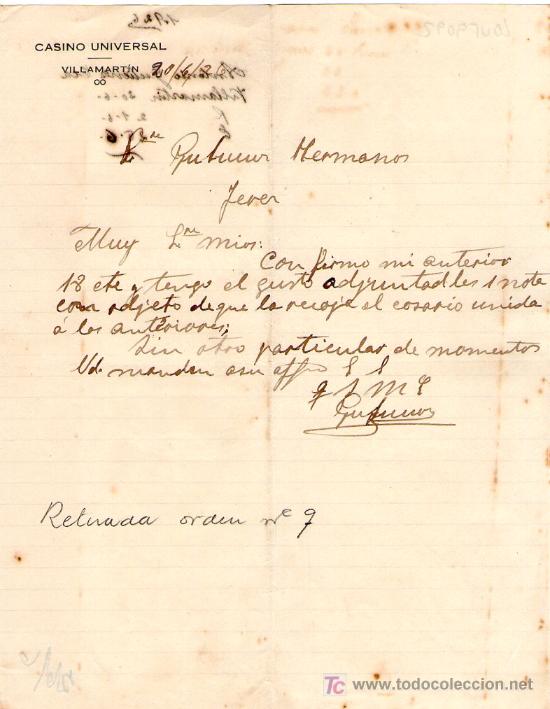 CASINO UNIVERSAL
VILLAMARTÍN 20/6/26
Sres
Hermanos
Jerez
Muy Sres mios:
Confirmo mi anterior
18 cte y tengo el gusto adjuntadles 1 note
con objeto de que la recoja el cosario unida
á las anteriores;
Sin otro particular de momentos
Vds manden a su affmo S S
q S M E
Retirada orden no 9
TC www.todocoleccion.net